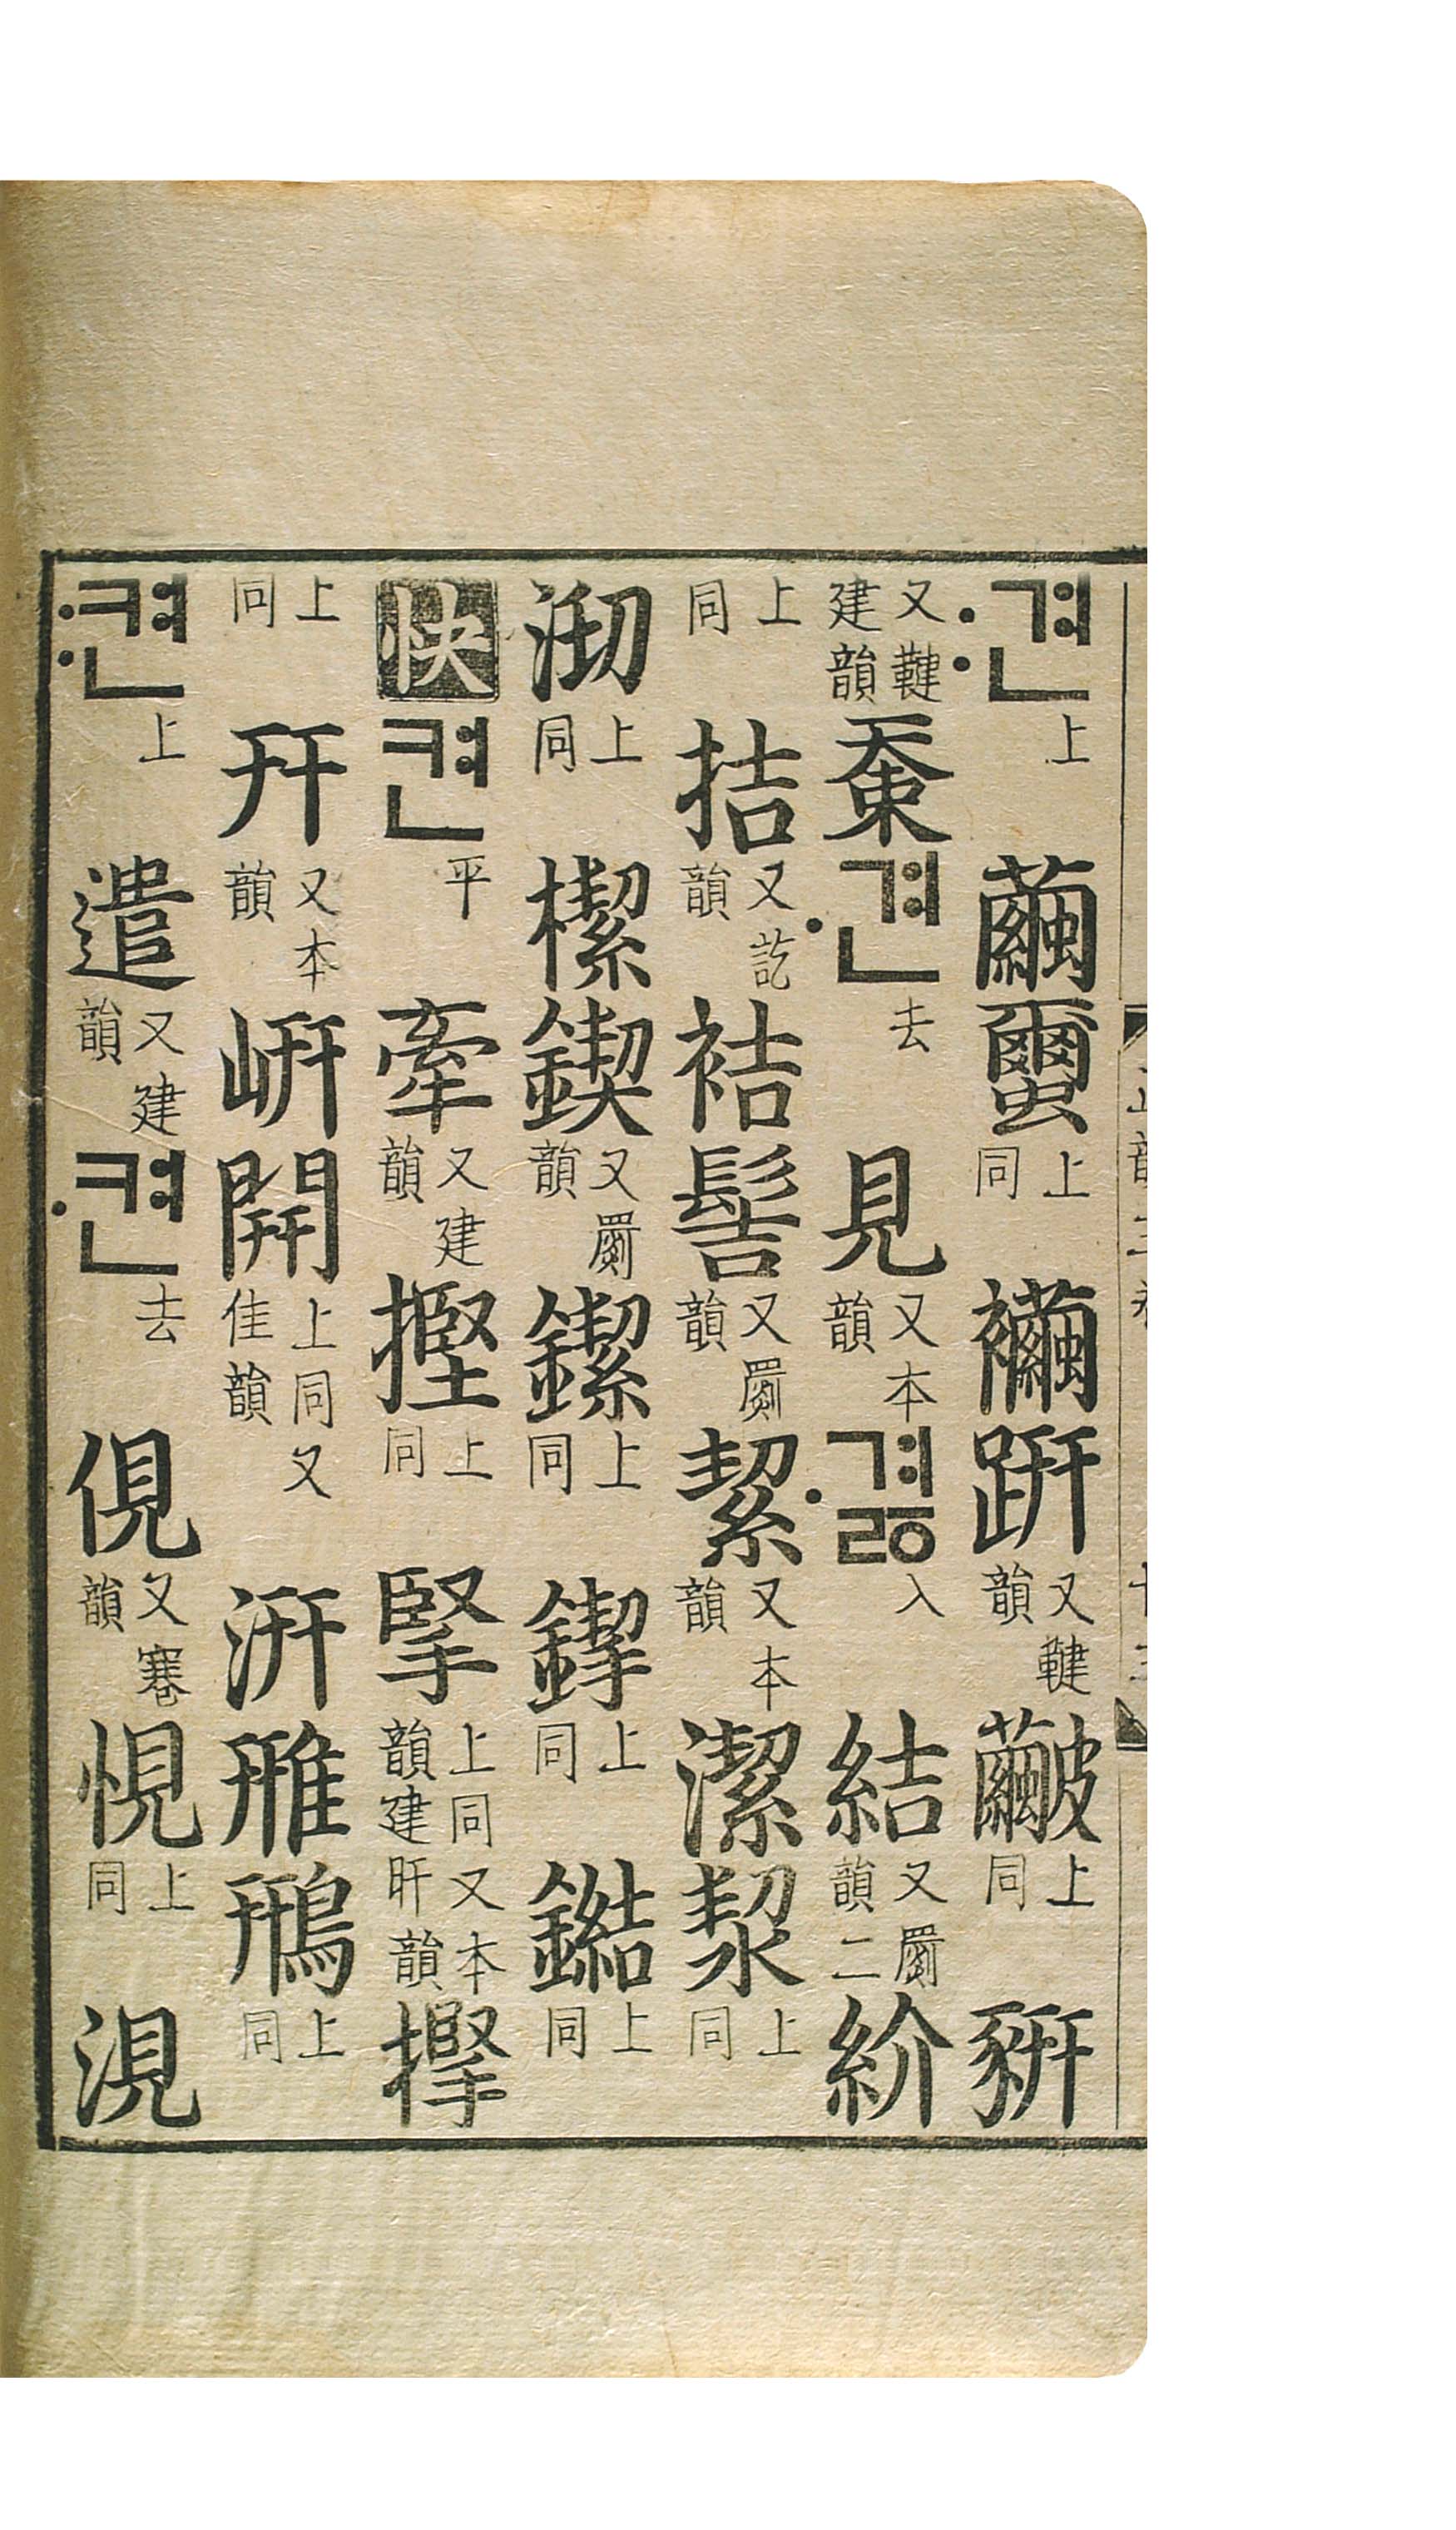 견〯上繭蠒上同襺趼又鞬韻上同豣
又鞬建韻견〮去見又本韻겨ᇙ〮入結又罽韻二紒
上同拮又訖韻袺髻又罽韻絜又本韻潔㓗上同
沏上同㮮鍥又罽韻上同上同上同
快켠平牽又建韻摼上同掔上同又本韻建肝韻
上同幵又本韻岍開上同又佳韻汧雃鳽上同
켠〯上遣又建韻켠〮去俔又蹇韻悓上同涀